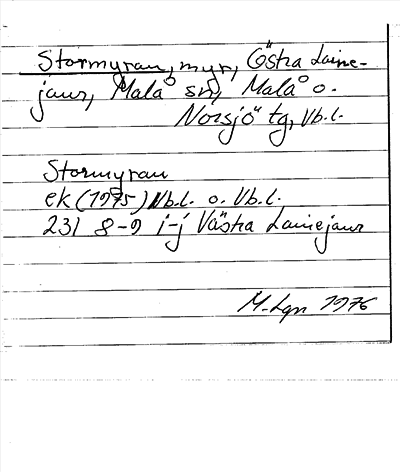 Stormyran, myr, Östra Laine-
jaur, Malå sn, Malå o.
Norsjö tg, Vb.l.
Stormyran
ek (1975) Nb.l. o. Vb.l.
231 8-9 i-j Västra Lainejaur
M-Lgn 1976